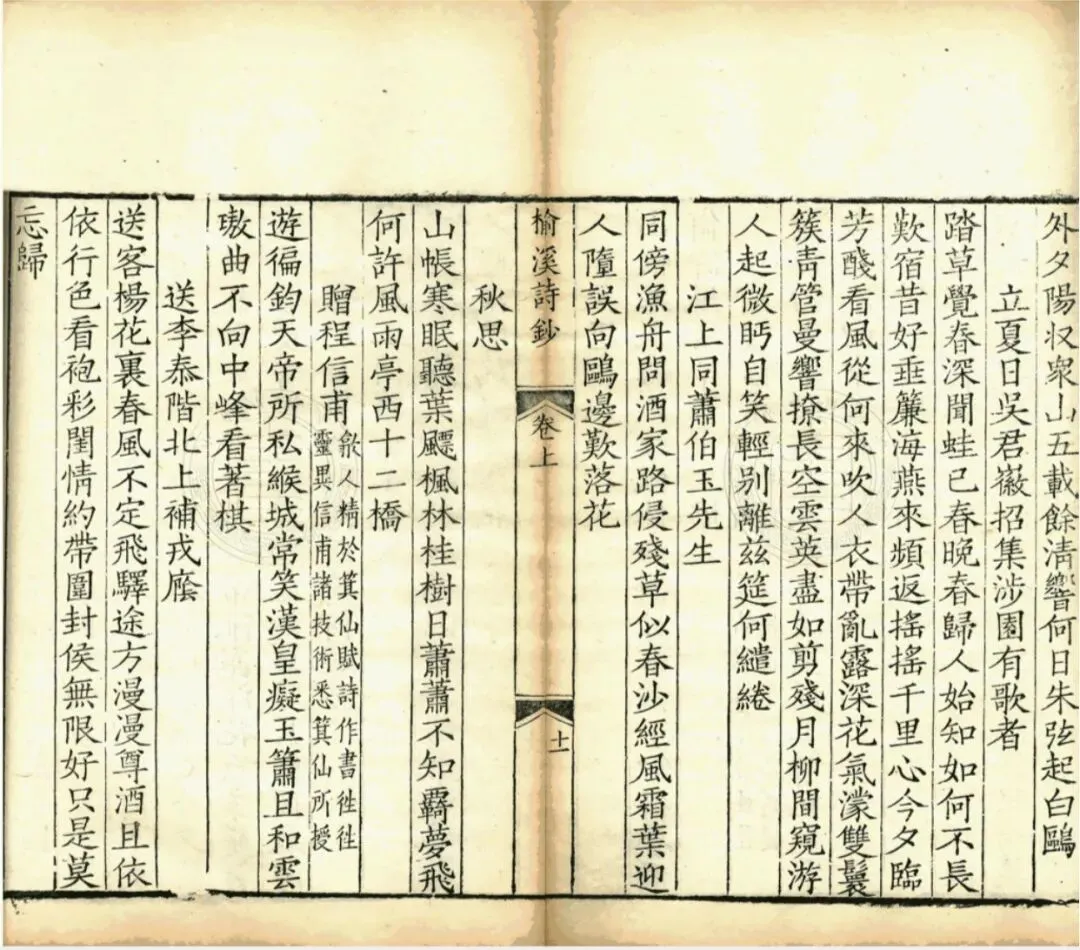 外夕陽収衆山五載餘清響何日朱弦起白鷗
立夏日吳君嶶招集涉園有歌者
踏草覺春深聞蛙已春晚春歸人始知如何不長
歎宿昔好垂簾海燕來頻返搖搖千里心今夕臨
芳醆看風從何來吹人衣帶亂露深花氣濛雙鬟
簇靑管曼響撩長空雲英盡如剪殘月柳間窺游
人起微眄自笑輕别離茲筵何繾綣
江上同蕭伯玉先生
同傍漁舟問酒家路侵殘草似春沙經風霜葉迎
人墮誤向鷗邊歎落花
榆溪詩鈔
卷上
十一
秋思
山帳寒眠聽葉飃楓林桂樹日蕭蕭不知覉夢飛
何許風雨亭西十二橋
贈程信甫
歙人精於箕仙賦詩作書徃徃
靈異信甫諸技術悉箕仙所授
遊徧鈞天帝所私緱城常笑漢皇癡玉簫且和雲
璈曲不向中峰看著棋
送李泰階北上補戎廕
送客楊花裏春風不定飛驛途方漫漫尊酒且依
依行色看袍彩閨情約帶圍封侯無限好只是莫
忘歸